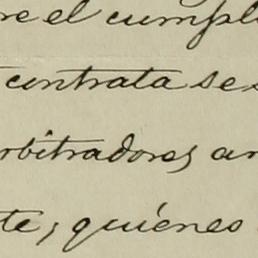 re el cumpl
contrata se
arbitradores, an
te, quiénes